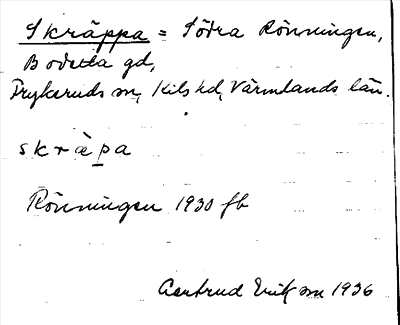 Skräppa = Södra Rönningen,
Bodetta gd,
Frykeruds sn, Kils hd, Värmlands län.
skräpa
Rönningen 1930 fb
Gertrud Erikson 1936